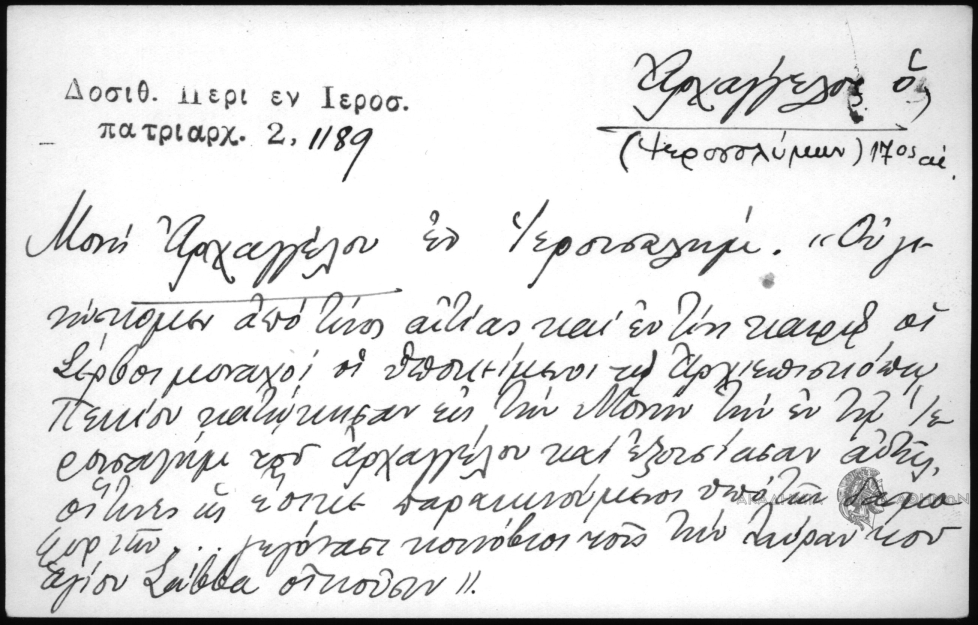 Δοσιθ. Περι εν Ιεροσ.
πατριαρχ. 2, 1189
Ἀρχαγγέλου ὁ,
(Ἱεροσολύμων) 17ος αἰ.
Μονή Ἀρχαγγέλου ἐν Ἱερουσαλήμ. "Οὐ γι-
νώσκομεν ἀπό τίνος αἰτίας καί ἐν τίνι καιρῷ οἱ
Σέρβοι μοναχοί οἱ ὑποκείμενοι τῷ Ἀρχιεπισκόπῳ
Πεκίου κατῴκησαν εἰς τήν Μονήν τήν ἐν τῇ Ἱε-
ρουσαλήμ τοῦ ἀρχαγγέλου καί ἐξουσίασαν αὐτήν,
οἵτινες ὡς ἔοικε παρακινούμενοι ὑπό τῶν
... γεγόνασι κοινόβιοι τοῖς τήν Λαύραν τοῦ
ἁγίου Σάββα οἰκοῦσιν".